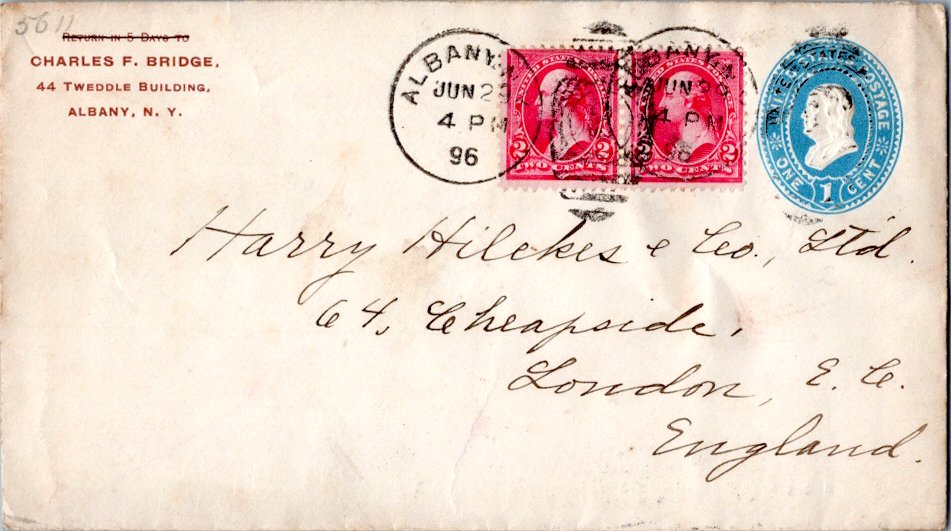 5611
RETURN IN 5 DAYS TO
CHARLES F. BRIDGE,
44 TWEDDLE BUILDING,
ALBANY, N. Y.
ALBANY, N.
JUN 2
4 PM
96
ALBANY, N.
JUN 2
4 PM
96
2 TWO CENTS 2
UNITED STATES POSTAGE
ONE 1 CENT
Harry Hilckes & Co., Ltd.
64, Cheapside,
London, E. C.
England.